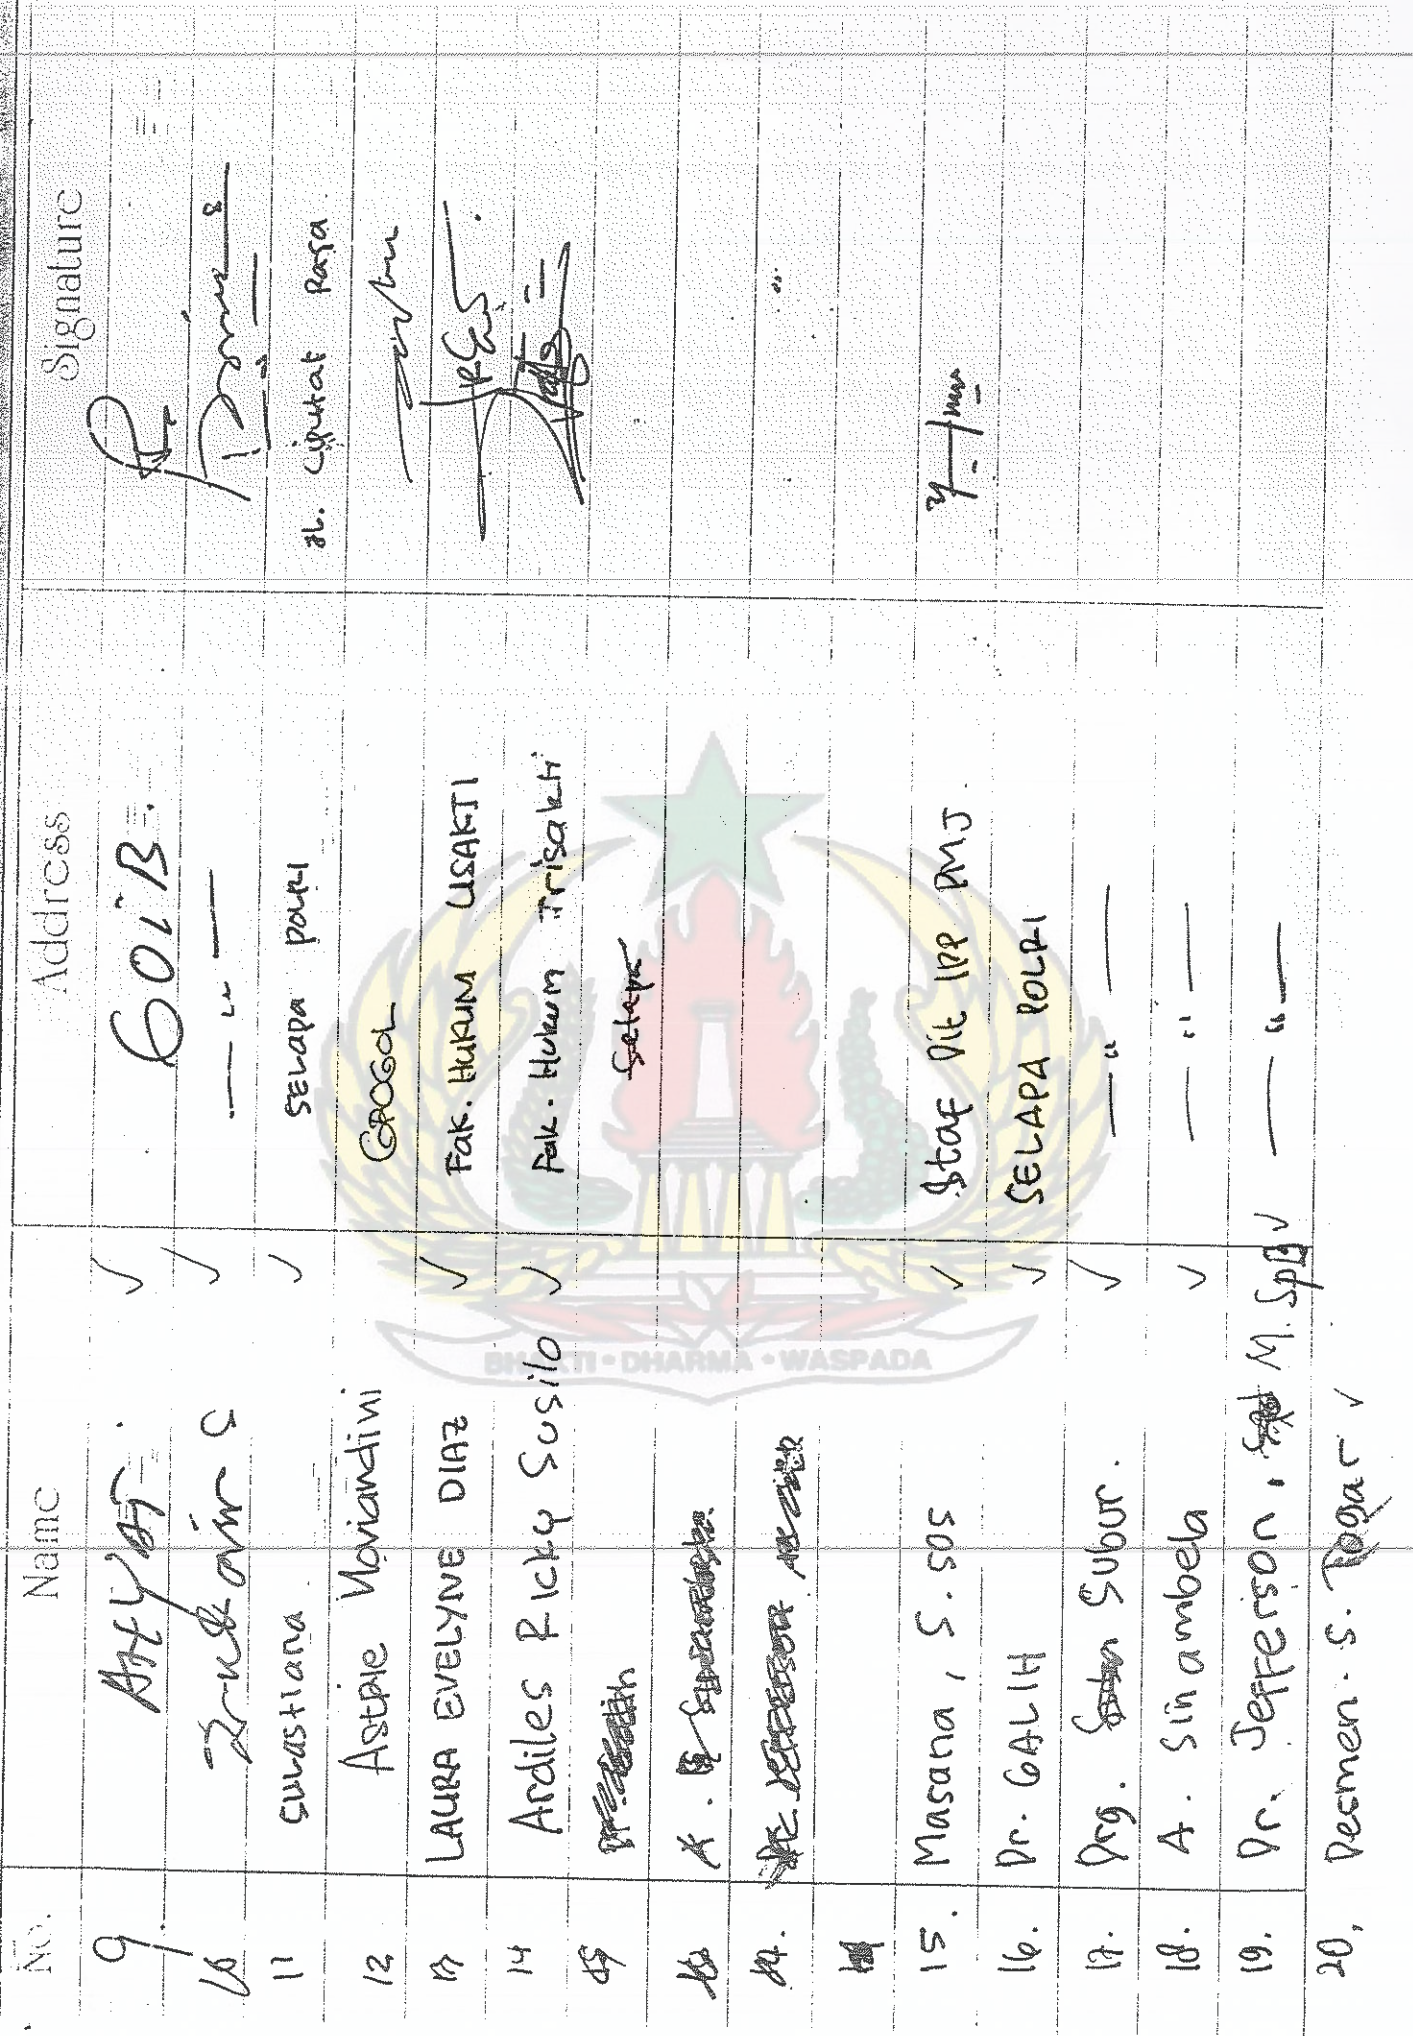 No. Name Address Signature
9. 60iB
10 — " —
11 SULASTIANA ✓ SELAPA POLRI JL. Ciputat Raya.
12 Astrie Noviandini GROGOL
13 LAURA EVELYNE DIAZ ✓ Fak. HUKUM USAKTI
14 Ardiles Ricky Susilo ✓ Fak. Hukum Trisakti
Selapa
15. Masana, S. SOS ✓ Staf Dit IPP PMJ.
16. Dr. GALIH ✓ SELAPA POLRI
17. Drg. Subur. ✓ — " —
18. A. Sinambela ✓ — " —
19. Dr. Jefferson, M. SpB ✓ — " —
20, Desmen. S. Togar ✓
BHAKTI • DHARMA • WASPADA